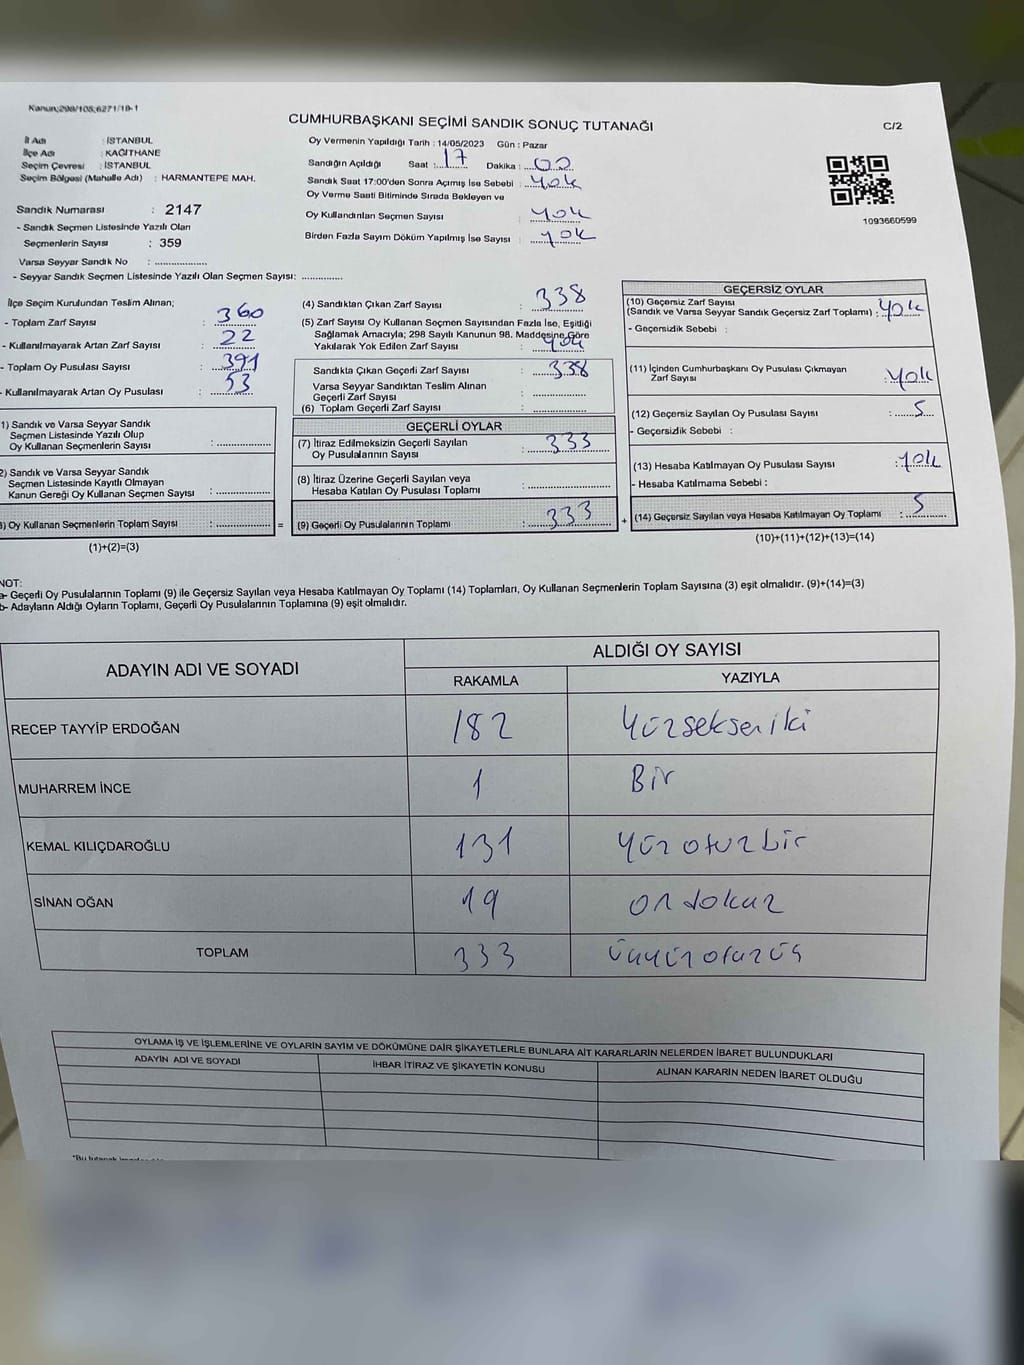 Kanun;298/105;6271/18-1
CUMHURBAŞKANI SEÇİMİ SANDIK SONUÇ TUTANAĞI
C/2
İl Adı : İSTANBUL
İlçe Adı : KAĞITHANE
Seçim Çevresi : İSTANBUL
Seçim Bölgesi (Mahalle Adı) : HARMANTEPE MAH.
Sandık Numarası : 2147
- Sandık Seçmen Listesinde Yazılı Olan
Seçmenlerin Sayısı : 359
Varsa Seyyar Sandık No : ....................
- Seyyar Sandık Seçmen Listesinde Yazılı Olan Seçmen Sayısı: ................
Oy Vermenin Yapıldığı Tarih : 14/05/2023 Gün : Pazar
Sandığın Açıldığı Saat : 17 Dakika : 00
Sandık Saat 17:00'den Sonra Açımış İse Sebebi : Yok
Oy Verme Saati Bitiminde Sırada Bekleyen ve
Oy Kullandırılan Seçmen Sayısı : Yok
Birden Fazla Sayım Döküm Yapılmış İse Sayısı : Yok
1093660599
İlçe Seçim Kurulundan Teslim Alınan;
- Toplam Zarf Sayısı : 360
- Kullanılmayarak Artan Zarf Sayısı : 22
- Toplam Oy Pusulası Sayısı : 391
- Kullanılmayarak Artan Oy Pusulası : 53
1) Sandık ve Varsa Seyyar Sandık
Seçmen Listesinde Yazılı Olup
Oy Kullanan Seçmenlerin Sayısı : ....................
2) Sandık ve Varsa Seyyar Sandık
Seçmen Listesinde Kayıtlı Olmayan
Kanun Gereği Oy Kullanan Seçmen Sayısı : ....................
) Oy Kullanan Seçmenlerin Toplam Sayısı : .................... =
(1)+(2)=(3)
(4) Sandıktan Çıkan Zarf Sayısı : 338
(5) Zarf Sayısı Oy Kullanan Seçmen Sayısından Fazla İse, Eşitliği
Sağlamak Amacıyla; 298 Sayılı Kanunun 98. Maddesine Göre
Yakılarak Yok Edilen Zarf Sayısı : Yok
Sandıkta Çıkan Geçerli Zarf Sayısı : 338
Varsa Seyyar Sandıktan Teslim Alınan
Geçerli Zarf Sayısı : ....................
(6) Toplam Geçerli Zarf Sayısı : ....................
GEÇERLİ OYLAR
(7) İtiraz Edilmeksizin Geçerli Sayılan
Oy Pusulalarının Sayısı : 333
(8) İtiraz Üzerine Geçerli Sayılan veya
Hesaba Katılan Oy Pusulası Toplamı : ....................
(9) Geçerli Oy Pusulalarının Toplamı : 333 +
GEÇERSİZ OYLAR
(10) Geçersiz Zarf Sayısı
(Sandık ve Varsa Seyyar Sandık Geçersiz Zarf Toplamı) : Yok
- Geçersizlik Sebebi :
(11) İçinden Cumhurbaşkanı Oy Pusulası Çıkmayan
Zarf Sayısı : Yok
(12) Geçersiz Sayılan Oy Pusulası Sayısı : 5
- Geçersizlik Sebebi :
(13) Hesaba Katılmayan Oy Pusulası Sayısı : Yok
- Hesaba Katılmama Sebebi :
(14) Geçersiz Sayılan veya Hesaba Katılmayan Oy Toplamı : 5
(10)+(11)+(12)+(13)=(14)
NOT:
a- Geçerli Oy Pusulalarının Toplamı (9) ile Geçersiz Sayılan veya Hesaba Katılmayan Oy Toplamı (14) Toplamları, Oy Kullanan Seçmenlerin Toplam Sayısına (3) eşit olmalıdır. (9)+(14)=(3)
b- Adayların Aldığı Oyların Toplamı, Geçerli Oy Pusulalarının Toplamına (9) eşit olmalıdır.
ADAYIN ADI VE SOYADI ALDIĞI OY SAYISI
RAKAMLA YAZIYLA
RECEP TAYYİP ERDOĞAN 182 Yüzsekseniki
MUHARREM İNCE 1 Bir
KEMAL KILIÇDAROĞLU 131 Yüzotuzbir
SİNAN OĞAN 19 ondokuz
TOPLAM 333 üçyüzotuzüç
OYLAMA İŞ VE İŞLEMLERİNE VE OYLARIN SAYIM VE DÖKÜMÜNE DAİR ŞİKAYETLERLE BUNLARA AİT KARARLARIN NELERDEN İBARET BULUNDUKLARI
ADAYIN ADI VE SOYADI İHBAR İTİRAZ VE ŞİKAYETİN KONUSU ALINAN KARARIN NEDEN İBARET OLDUĞU
*Bu tutanak